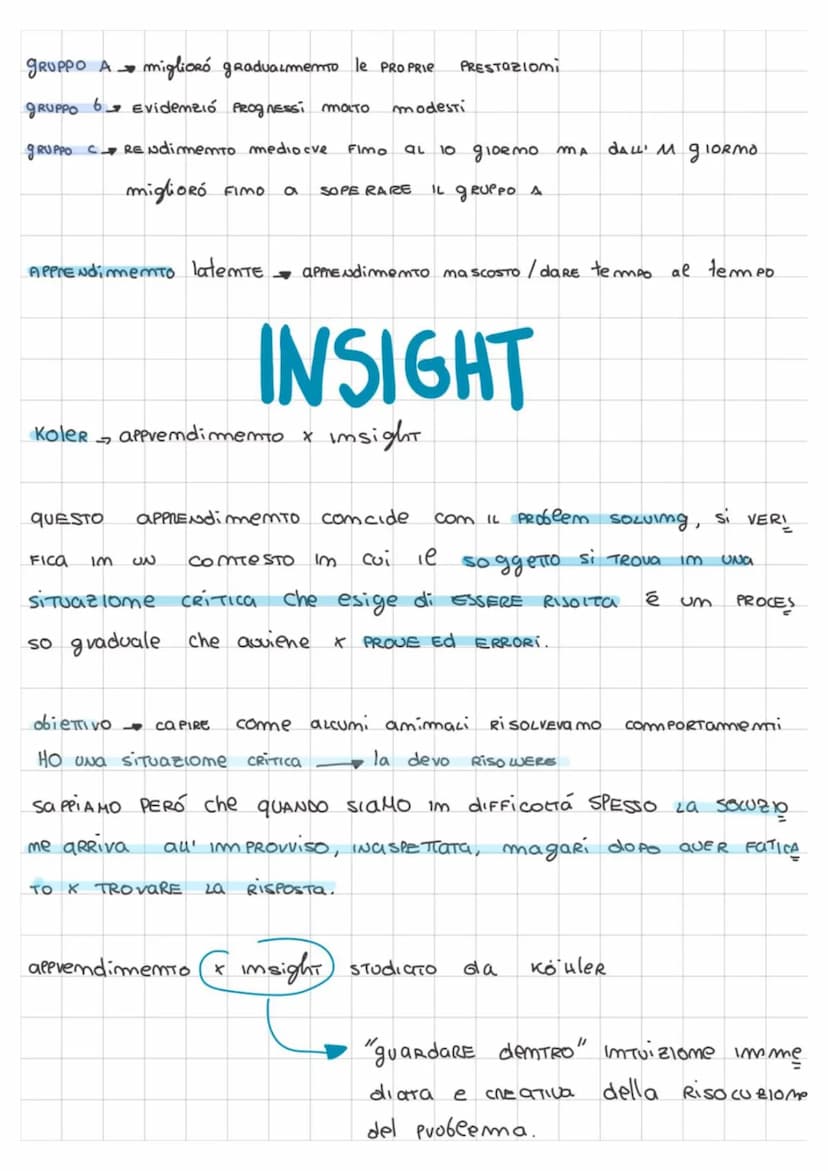 GRUPPO A → miglioró gradualmente le PROPRIE PRESTAZIONI
GRUPPO B → EVIDENZIÓ PROGRESSI MOLTO MODESTI
GRUPPO C → RENDIMENTO MEDIOCRE FINO AL 10 GIORNO MA DALL' 11 GIORNO
miglioró FINO a SOPERARE IL GRUPPO A
APPRENDIMENTO latente → APPRENDIMENTO NASCOSTO / DARE tempo al tempo
INSIGHT
KOLER → apprendimento x insight
QUESTO APPRENDIMENTO COINCIDE CON IL PROBLEM SOLVING, SI VERI
FICA IN UN CONTESTO IN CUI IL SOGGETTO SI TROVA IN UNA
SITUAZIONE CRITICA CHE ESIGE DI ESSERE RISOLTA É UN PROCES
SO graduale che avviene x PROVE ED ERRORI.
obiettivo → CAPIRE come alcuni animali RISOLVEVANO COMPORTAMENTI
HO UNA SITUAZIONE CRITICA → la devo RISOLVERE
SAPPIAMO PERÓ che QUANDO SIAMO IN DIFFICOLTÁ SPESSO LA SOLUZIO
NE ARRIVA ALL' IMPROVVISO, INASPETTATA, magari dopo AVER FATICA
TO X TROVARE LA RISPOSTA.
apprendimento x insight STUDIATO da KÖULER
"GUARDARE DENTRO" INTUIZIONE IMME
DIATA e CREATIVA della RISOLUZIONE
del problema.